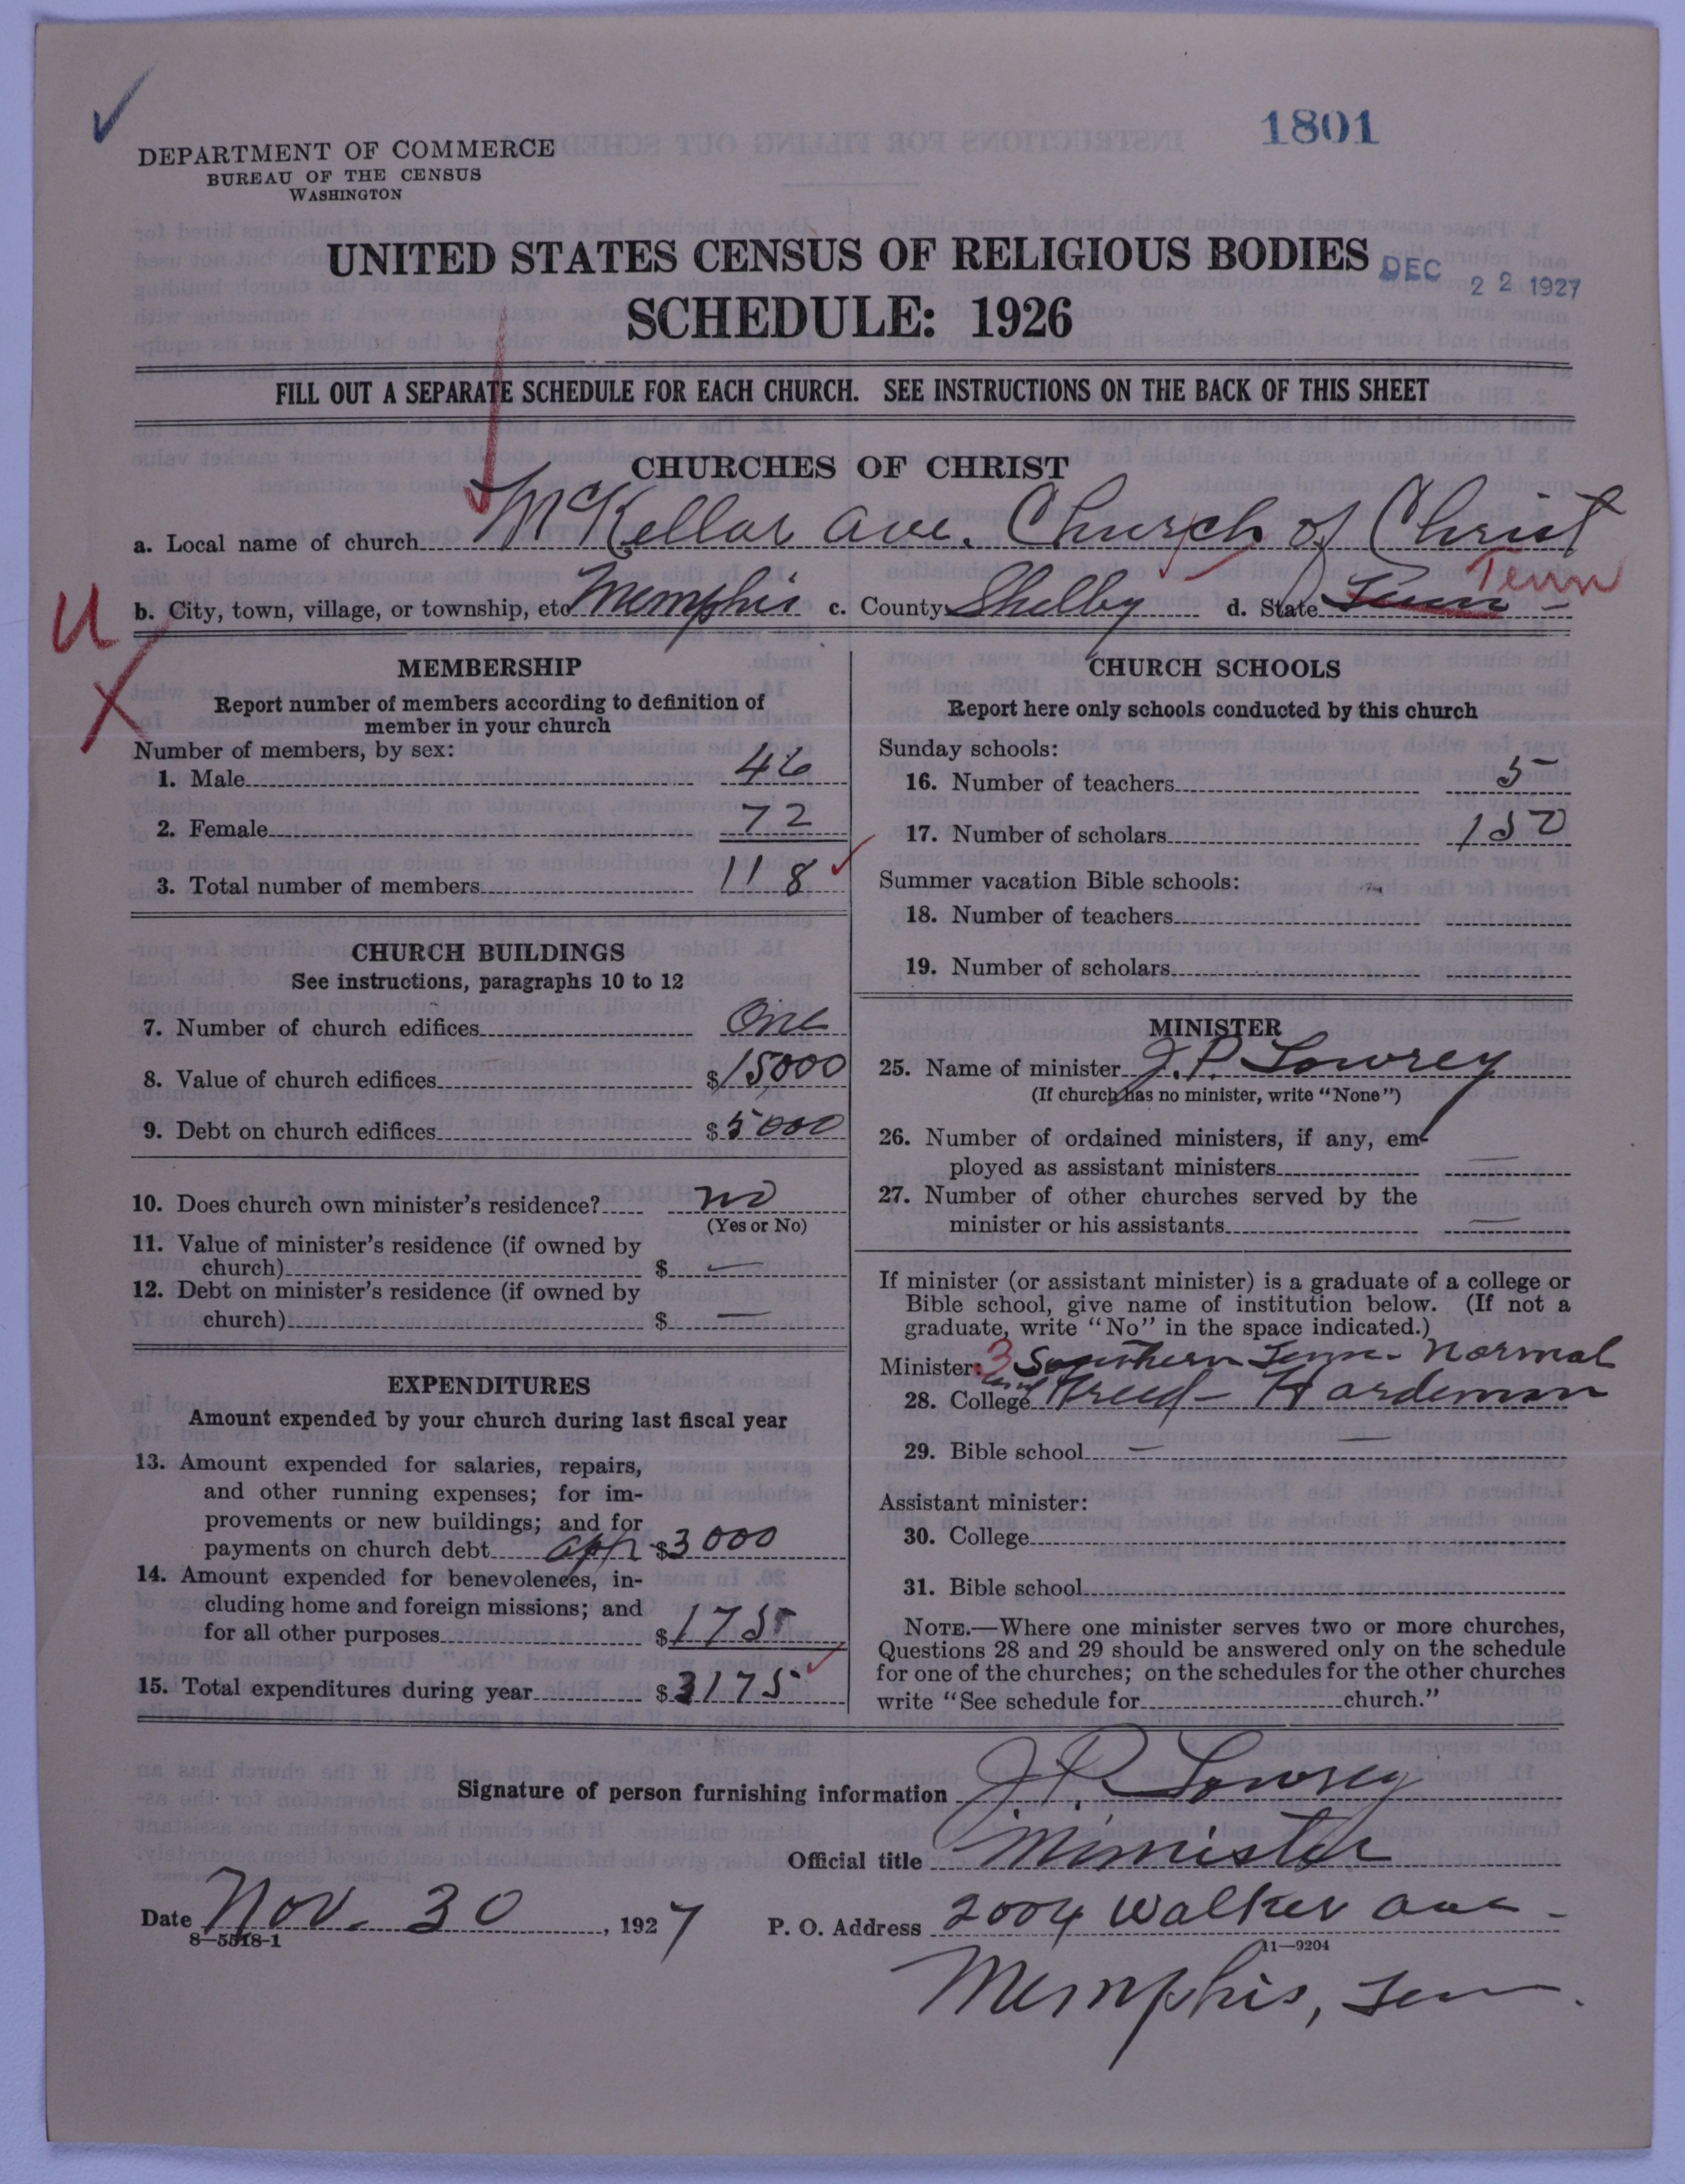 1801
DEPARTMENT OF COMMERCE
BUREAU OF THE CENSUS
WASHINGTON
UNITED STATES CENSUS OF RELIGIOUS BODIES
DEC 22 1927
SCHEDULE: 1926
FILL OUT A SEPARATE SCHEDULE FOR EACH CHURCH. SEE INSTRUCTIONS ON THE BACK OF THIS SHEET
CHURCHES OF CHRIST
a. Local name of church McKellar Ave. Church of Christ
Tenn
b. City, town, village, or township, etc Memphis c. County Shelby d. State Tenn
U
X
MEMBERSHIP
Report number of members according to definition of
member in your church
Number of members, by sex:
1. Male 46
2. Female 72
3. Total number of members 118
CHURCH BUILDINGS
See instructions, paragraphs 10 to 12
7. Number of church edifices One
8. Value of church edifices $15000
9. Debt on church edifices $5000
10. Does church own minister's residence? no
(Yes or No)
11. Value of minister's residence (if owned by
church) $ —
12. Debt on minister's residence (if owned by
church) $ —
EXPENDITURES
Amount expended by your church during last fiscal year
13. Amount expended for salaries, repairs,
and other running expenses; for im-
provements or new buildings; and for
payments on church debt appr $3000
14. Amount expended for benevolences, in-
cluding home and foreign missions; and
for all other purposes $175
15. Total expenditures during year $3175
CHURCH SCHOOLS
Report here only schools conducted by this church
Sunday schools:
16. Number of teachers 5
17. Number of scholars 150
Summer vacation Bible schools:
18. Number of teachers
19. Number of scholars
MINISTER
25. Name of minister J. P. Lowrey
(If church has no minister, write "None")
26. Number of ordained ministers, if any, em-
ployed as assistant ministers —
27. Number of other churches served by the
minister or his assistants —
If minister (or assistant minister) is a graduate of a college or
Bible school, give name of institution below. (If not a
graduate, write "No" in the space indicated.)
Minister: 3 Southern Tenn. Normal
28. College and Freed-Hardeman
29. Bible school — —
Assistant minister:
30. College
31. Bible school
NOTE.—Where one minister serves two or more churches,
Questions 28 and 29 should be answered only on the schedule
for one of the churches; on the schedules for the other churches
write "See schedule for church."
Signature of person furnishing information J. P. Lowrey
Official title Minister
Date Nov. 30, 1927 P. O. Address 2004 Walker Ave
8—5518-1
11—9204
Memphis, Tenn.